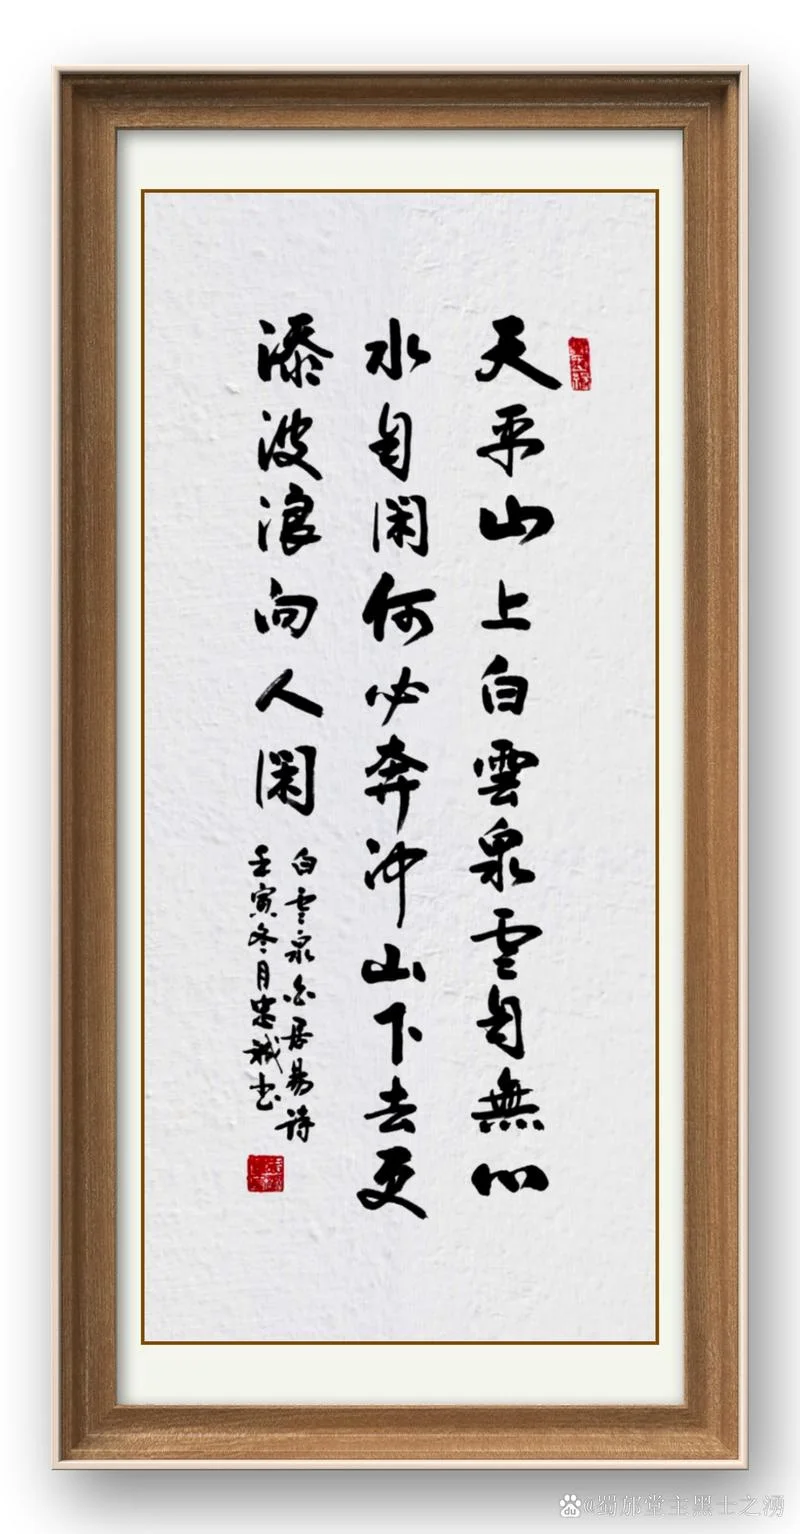 天平山上白雲泉雲自無心
水自闲何必奔冲山下去更
添波浪向人闲
白雲泉白居易诗
壬寅冬月忠书
du
@蜀邡堂主黑士之湧